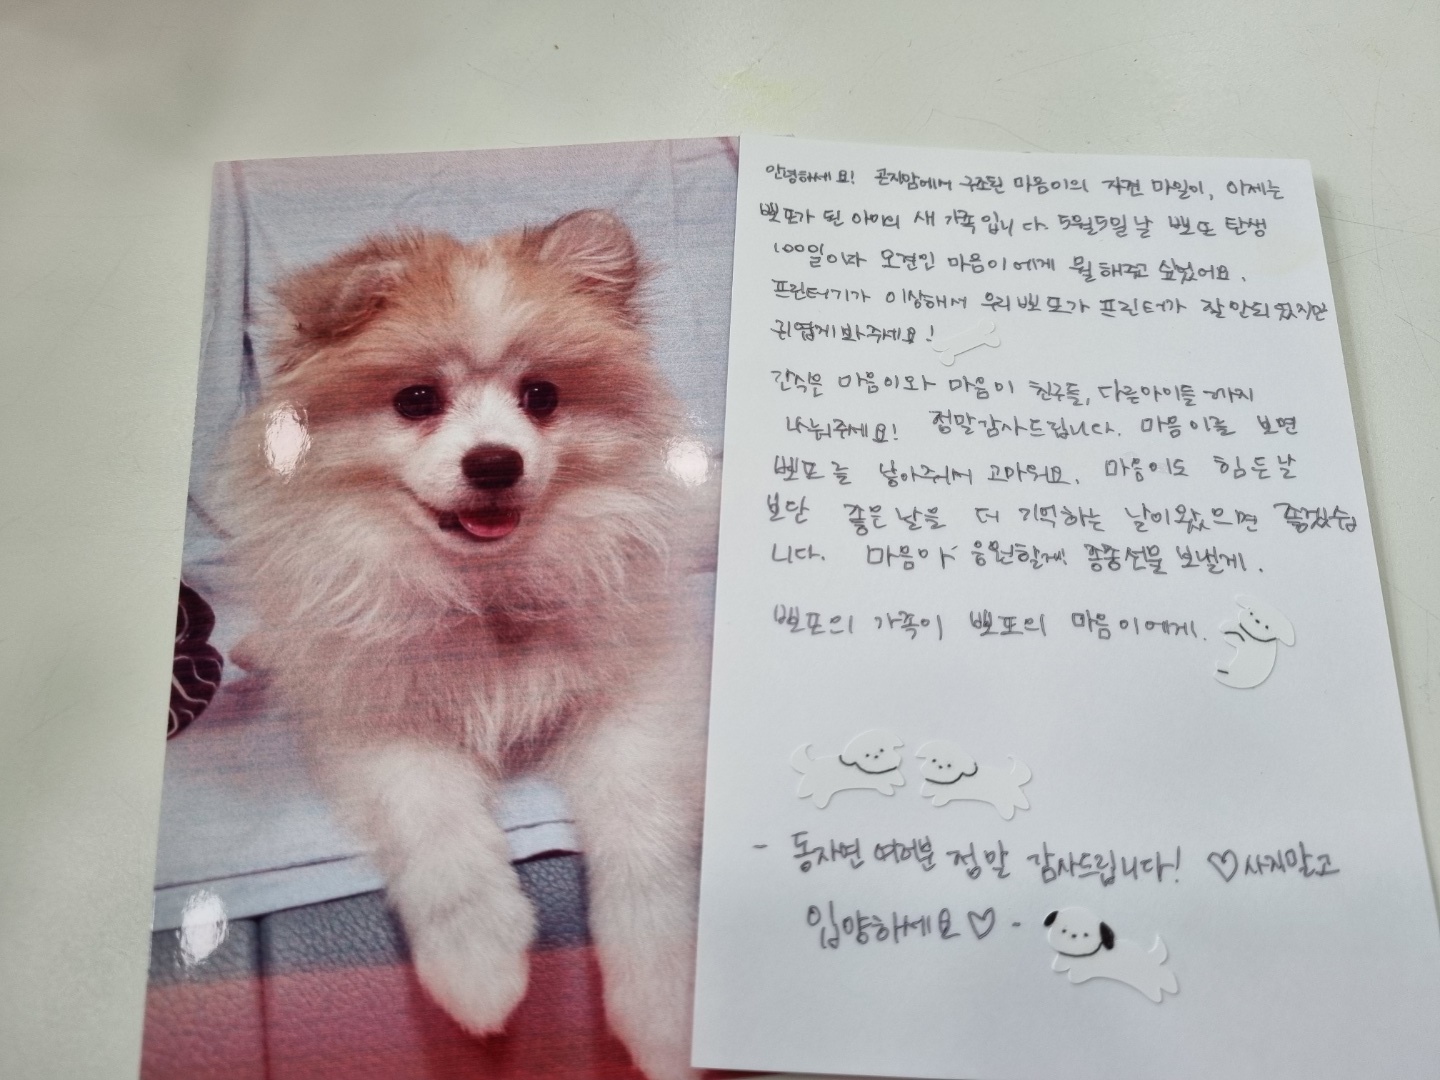 안녕하세요! 곤지암에서 구조된 마음이의 자견 마일이, 이제는
뽀또가 된 아이의 새 가족입니다. 5월5일날 뽀또 탄생
100일이라 모견인 마음이에게 뭘 해주고 싶었어요.
프린터기가 이상해서 우리뽀또가 프린터가 잘 안되었지만
귀엽게 봐주세요!
간식은 마음이와 마음이 친구들, 다른아이들까지
나눠주세요! 정말감사드립니다. 마음이를 보면
뽀또를 낳아주어서 고마워요. 마음이도 힘든날
보단 좋은날을 더 기억하는 날이왔으면 좋겠습
니다. 마음아 응원할게! 종종선물 보낼게.
뽀또의 가족이 뽀또의 마음이에게.
- 동자연 여러분 정말 감사드립니다! ♡사지말고
입양하세요♡ -